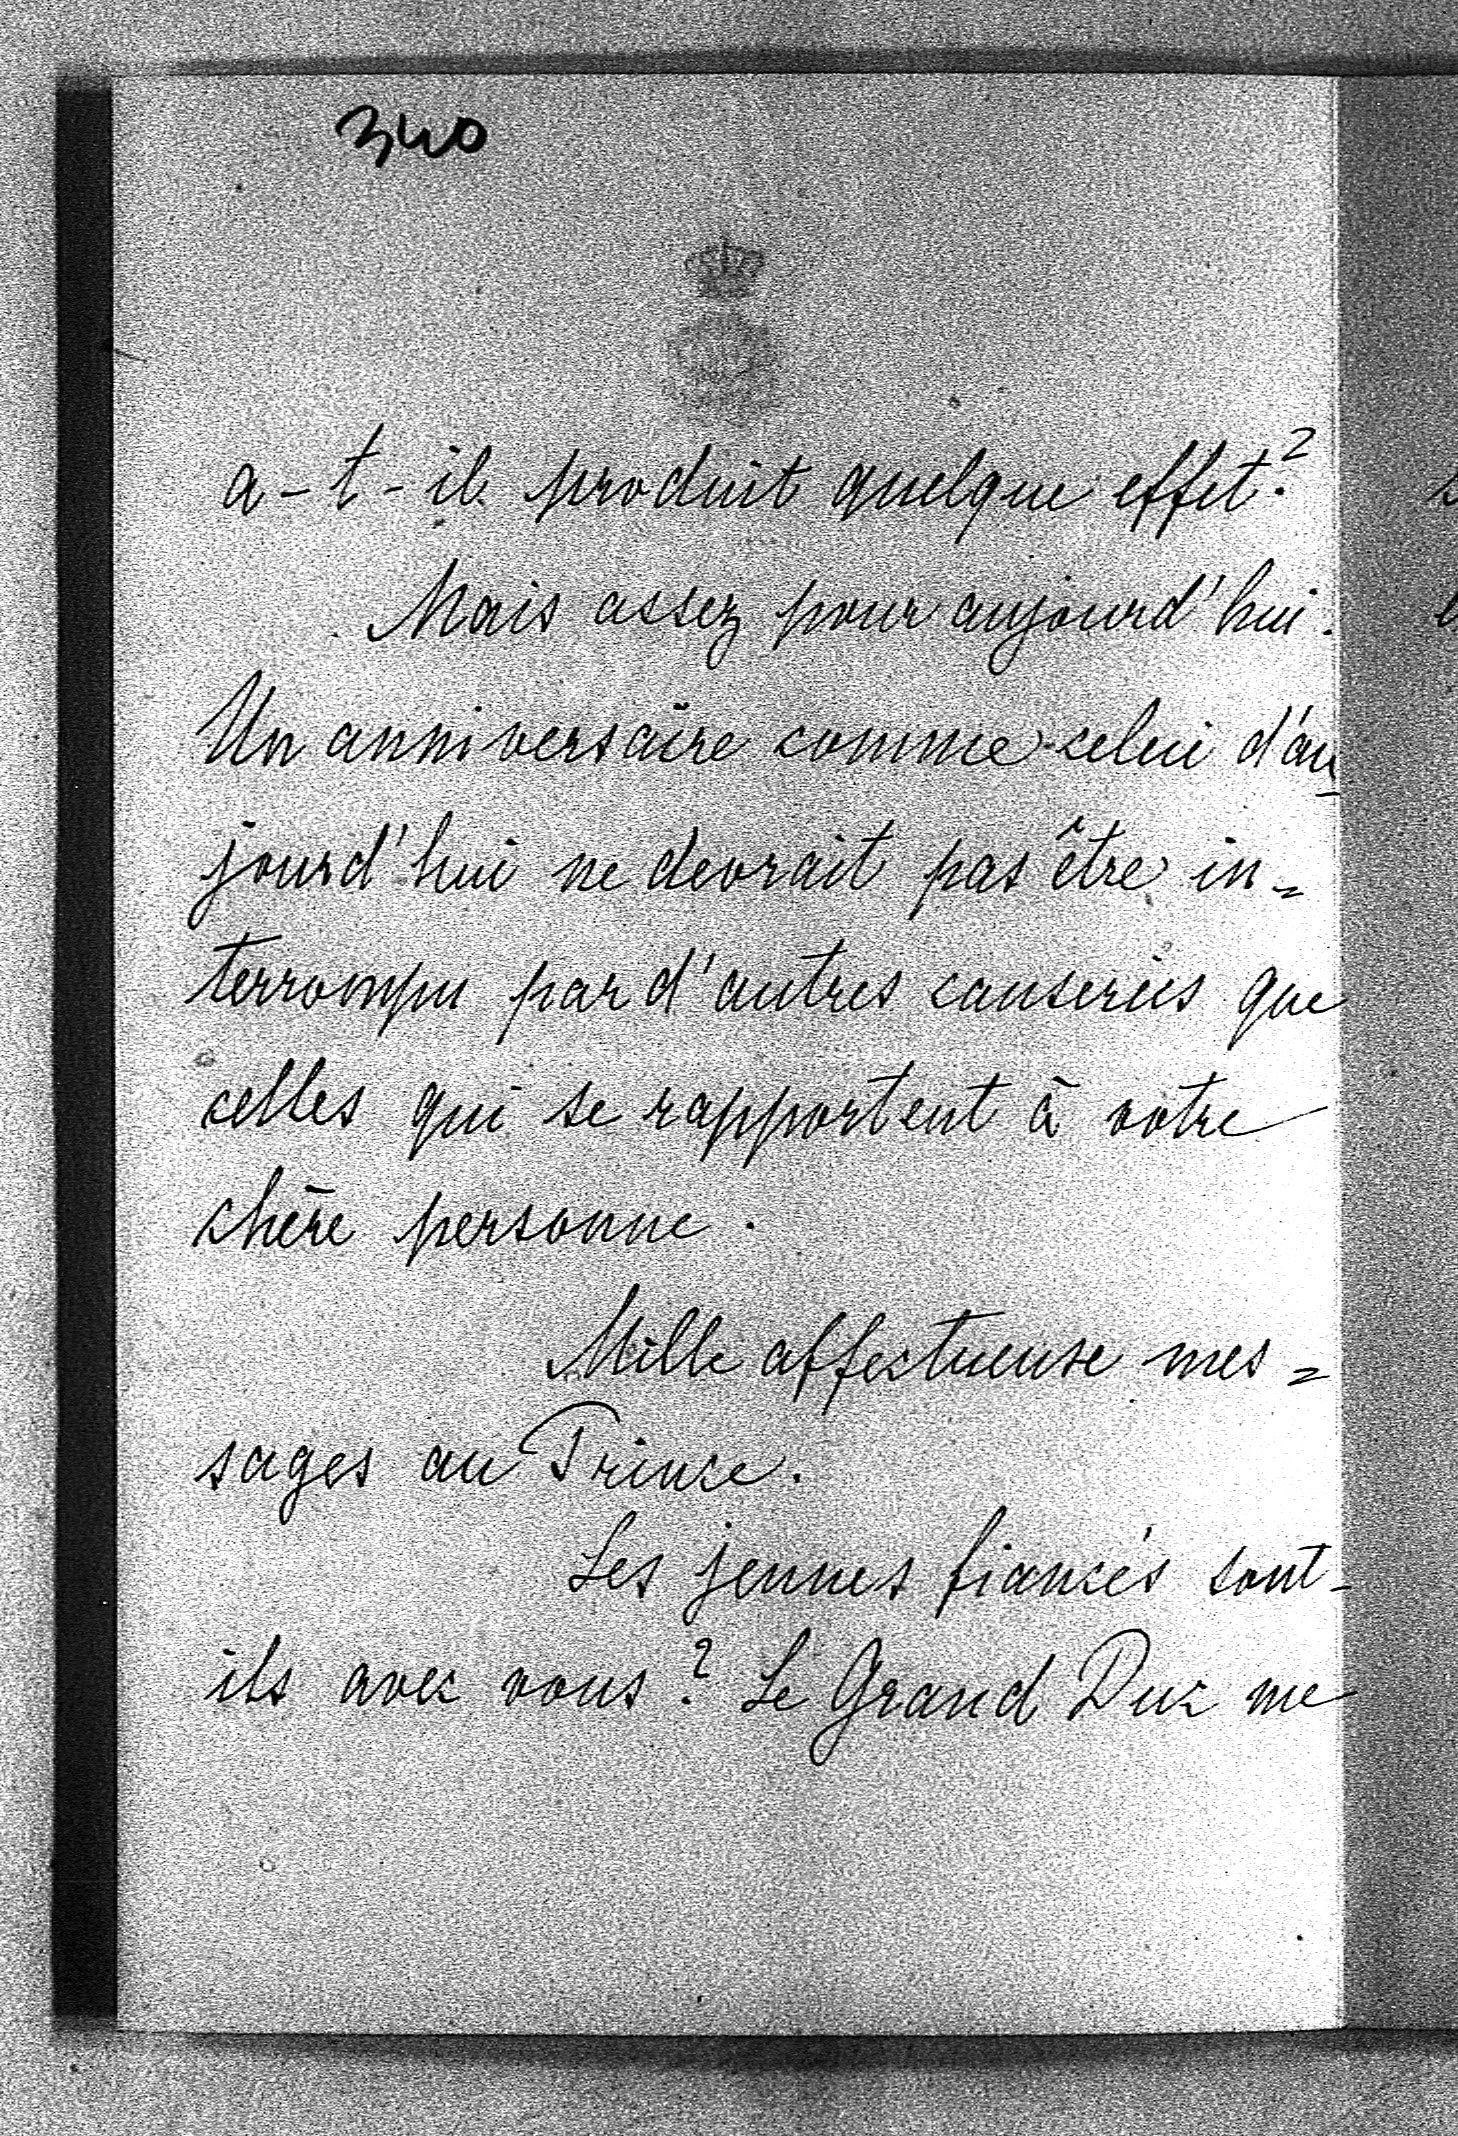 340
a-t-il produit quelque effet?
Mais assez pour aujourd'hui.
Un anniversaire comme celui d'au-
jourd'hui ne devrait pas être in=
terrompu par d'autres causeries que
celles qui se rapportent à votre
chère personne.
Mille affectueuse mes=
sages au Prince.
Les jeunes fiancés sont-
ils avec vous? Le Grand Duc me